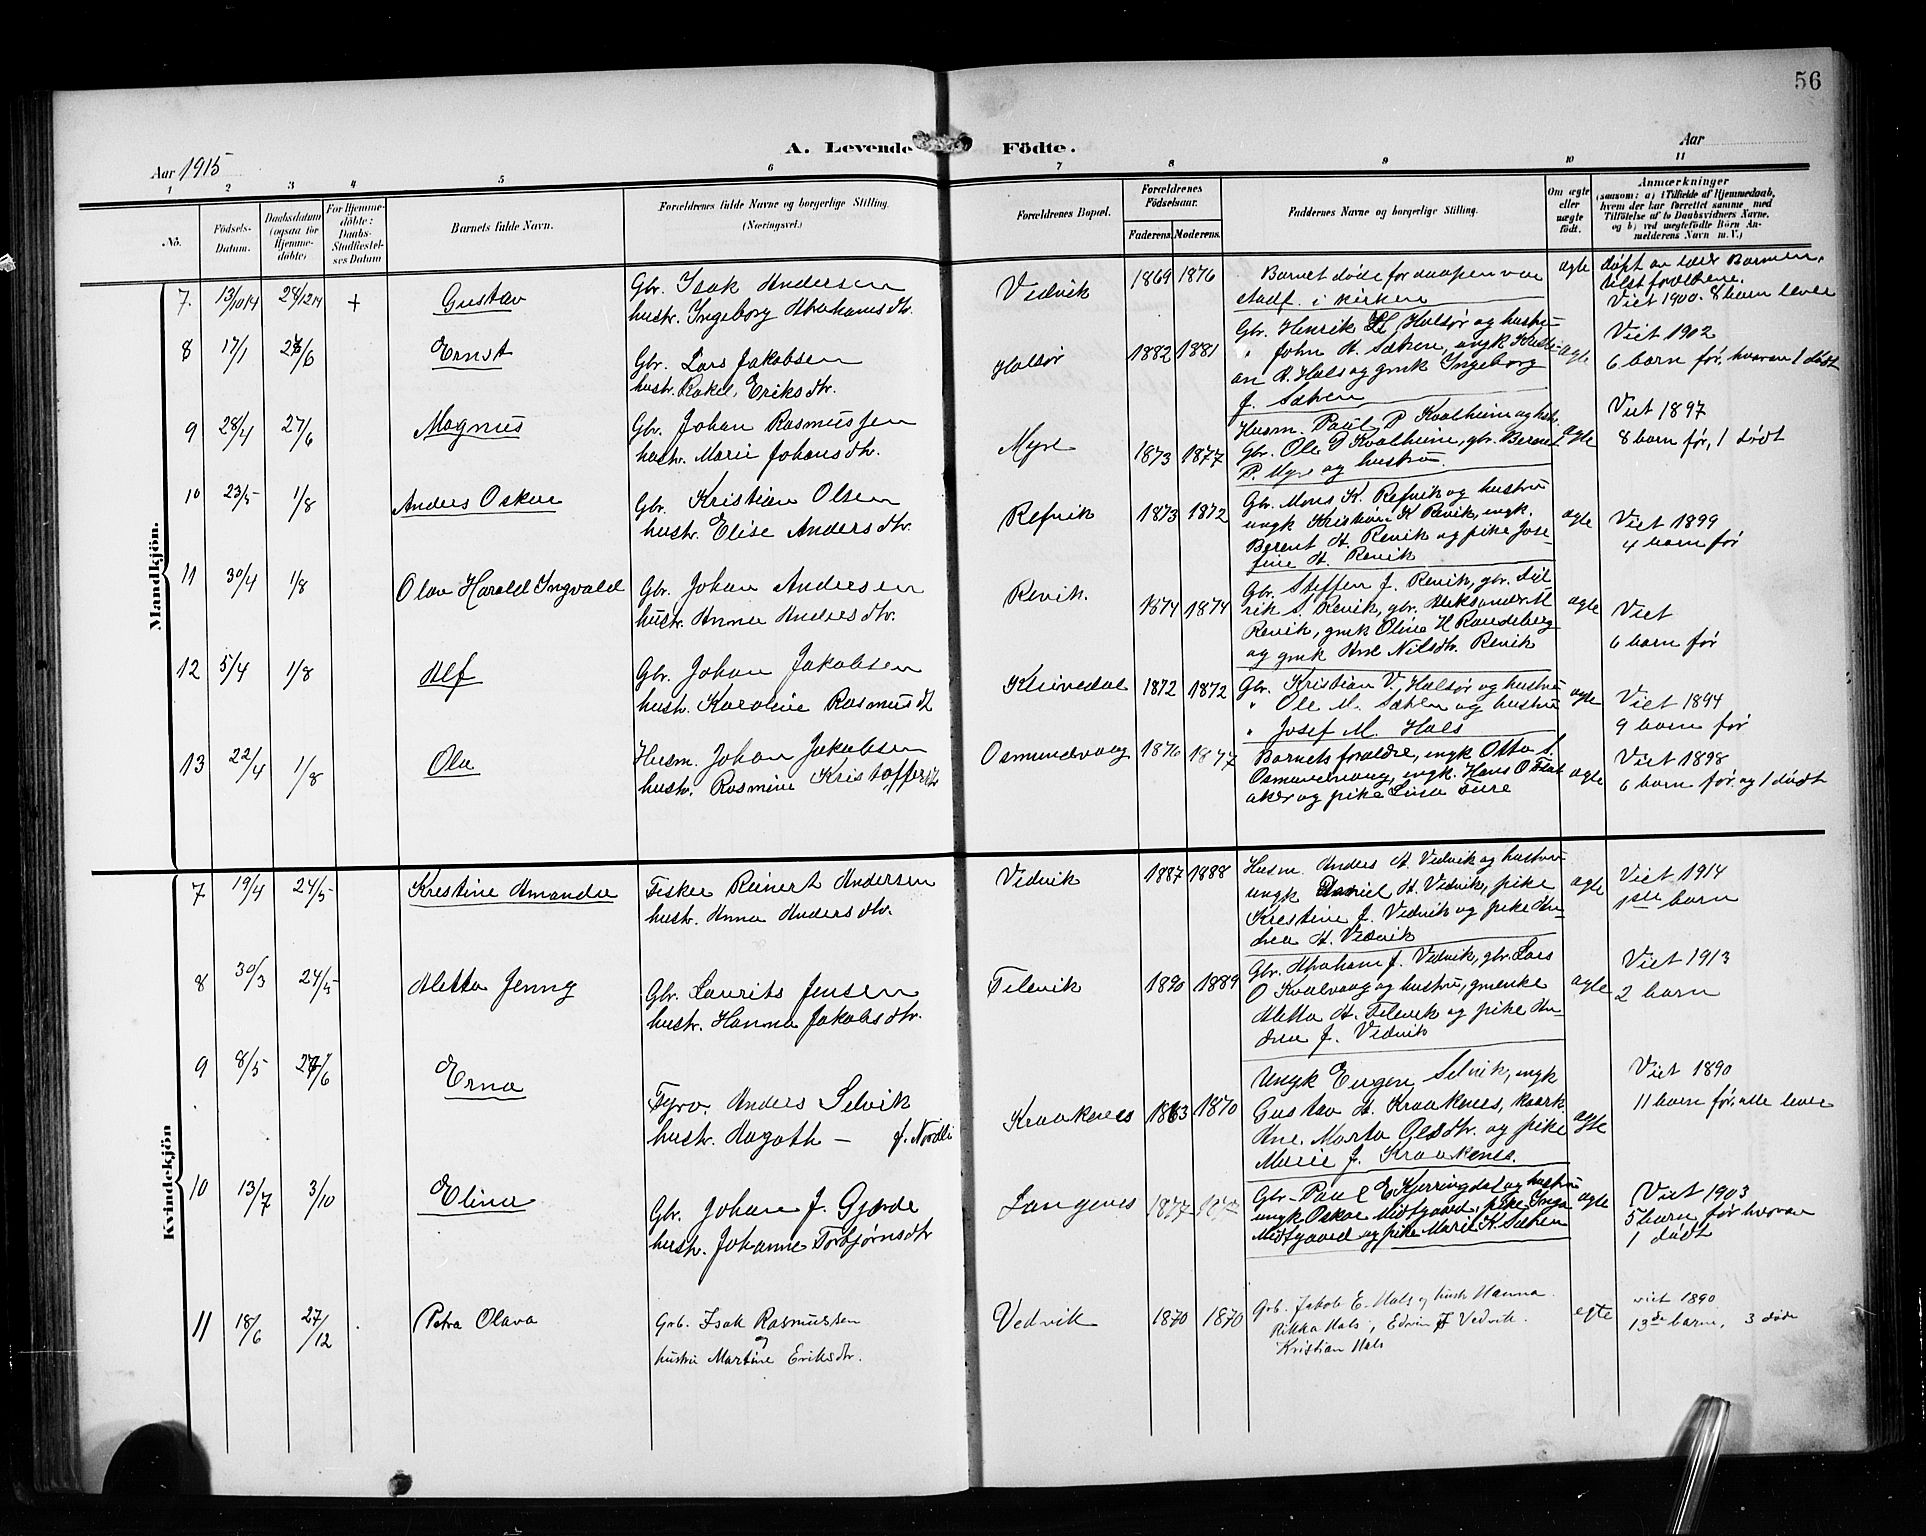 56
A. Levende Fødte.
Aar 1915
Aar
1 2 3 4 5 6 7 8 9 10 11
No.
Födsels-Datum.
Daabsdatum (ogsaa for Hjemme-döbte)
For Hjemme-döbte: Daabs-Stadfæstel-ses Datum
Barnets fulde Navn.
Forældrenes fulde Navne og borgerlige Stilling.
(Næringsvei.)
Forældrenes Bopæl.
Forældrenes Födselsaar.
Faderens. Moderens.
Faddernes Navne og borgerlige Stilling.
Om ægte eller uægte födt.
Anmærkninger
(saasom: a) i Tilfælde af Hjemmedaab,
hvem der har forrettet samme, med
Tilföielse af to Daabsvidners Navne,
og b) ved uægtefödte Börn An-
melderens Navn m. V.)
Mandkjön.
7. 13/10 14 28/12 14 + Gustav
Gbr. Isak Andersen
hustr. Ingeborg Abrahamsdtr.
Vedvik 1869 1876
Barnet døde før daapen var
stadf. i kirken
ægte
Viet 1900. 8 barn lever
8 17/1 Ernst
Gbr. Lars Jakobsen
hustr. Rakel Eriksdtr.
Halsør 1882 1881
Gbr. Henrik Halsør og hustru
" John A. Sætren, ungk Kristi-
an R. Hals og gmk Ingeborg
J. Sætren
ægte
Viet 1902
6 barn før, hvorav 1 dødt
9 28/4 27/6 Magnus
Gbr. Johan Rasmussen
hustr. Marie Johansdtr.
Myre 1873 1877
Husm. Paul P Kvalheim og hustr.
Gbr. Ole P Kvalheim, gbr. Berent
P. Myre og hustru.
ægte
Viet 1897
8 barn før, 1 dødt
10 23/5 1/8 Anders Oskar
Gbr. Kristian Olsen
hustr. Elise Andersdtr.
Refvik 1873 1872
Gbr. Mons K. Refvik og hustru
ungk Kristian K Revik, ungk.
Berent A. Revik og pike Jose-
fine A. Revik
ægte
Viet 1899
4 barn før
11 30/4 1/8 Olav Harald Ingvald
Gbr. Johan Andersen
hustr. Anna Andersdtr.
Revik. 1874 1874
Gbr. Steffen J. Revik, gbr. Did-
rik S. Revik, gbr. Aleksander M
Revik, gmk Oline H Randeberg
og gmk Ane Nilsdtr. Revik
ægte
Viet
6 barn før
12 5/4 1/8 Alf
Gbr. Johan Jakobsen
hustr. Karoline Rasmusd.
Klrivedal 1872 1872
Gbr. Kristian V. Halsør og hustru
" Ole M. Sætren og hustru
" Josef M. Hals
ægte
Viet 1894
9 barn før
13 22/4 1/8 Ola
Husm. Johan Jakobsen
hustr. Rasmine Kristoffersdtr
Osmundvaag 1876 1877
Barnets forældre, ungk Otto S.
Osmundvaag, ungk. Hans O Flat
aker og pike Lina Ture
ægte
Viet 1898
6 barn før. og 1 dødt
Kvindekjön
7 19/4 24/5 Kristine Amanda
Fisker Reinert Andersen
hustr. Anna Andersdtr.
Vedvik 1887 1888
Husm. Anders A. Vedvik og hustru
ungk Daniel A. Vedvik, pike
Kristine J. Vedvik og pike An-
drea A. Vedvik
ægte
Viet 1914
1ste barn
8 30/3 24/5 Aletta Jenny
Gbr. Laurits Jensen
hustr. Hanna Jakobsdtr.
Filevik 1890 1889
Gbr. Abraham J. Vedvik, gbr. Lars
O Kvalvaag og hustru, gmenke
Aletta A. Filevik og pike An-
drea J. Vedvik
ægte
Viet 1913
2 barn
9 8/5 Erna
Fyrv. Anders Selvik
hustr. Hagath - f. Nordli
Kraaknes 1863 1870
Ungk Eugen Selvik, ungk
Gustav A. Kraaknes, kaark.
Ane Marta Olsdtr. og pike
Marie J. Kraakenes.
ægte
Viet 1890
11 barn før. alle lever
10 13/7 3/10 Elina
Gbr. Johan J. Gjørde
hustr. Johanne Torbjørnsdtr
Langenes 1877
Gbr. Paul E Kjerringdal og hustru
ungk Oskar Midtgaard, pike Inga
Midtgaard og pike Marie K. Sætren
ægte
Viet 1903
5 barn før hvorav
1 dødt
11 18/6 27/12 Petra Olava
Grb. Isak Rasmussen
og
hustru Martine Eriksdtr.
Vedvik 1870 1870
Grb. Jakob E. Hals og hustr Hanna.
Rikka Hals, Edvin F Vedvik.
Kristian Hals
egte
viet 1890
13de barn, 3 døde